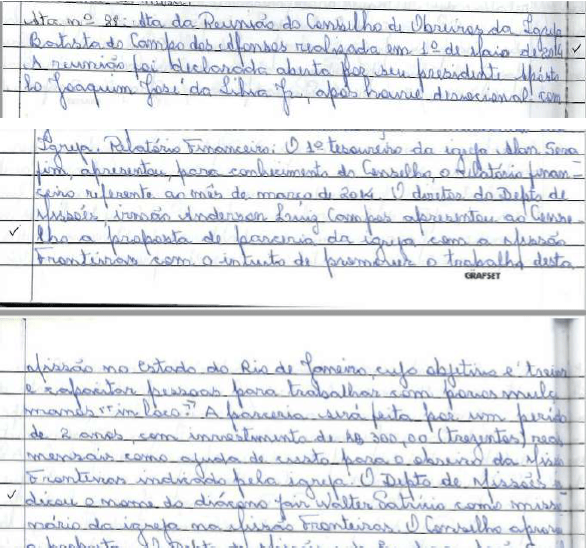 Ata nº 28: Ata da Reunião do Conselho de Obreiros da Igreja
Batista do Campo dos Afonsos realizada em 1º de Maio de 2014
A reunião foi declarada aberta por seu presidente Apósto
lo Joaquim José da Silva Jr, após houve devocional com
Igreja. Relatório Financeiro: O 1º tesoureiro da igreja Alan Sera
fim, apresentou, para conhecimento do Conselho, o relatório finan-
ceiro referente ao mês de março de 2014. O diretor do Depto de
Missões, irmão Anderson Luiz Campos apresentou ao Conse
lho a proposta de parceria da igreja com a Missão
Fronteiras com o intuito de promover o trabalho desta
GRAFSET
Missão no Estado do Rio de Janeiro, cujo objetivo é trein
e capacitar pessoas para trabalhar com povos mulç
manos "in loco". A parceria será feita por um perío
de 2 anos, com investimento de R$ 300,00 (trezentos) reai
mensais como ajuda de custo para o obreiro da Miss
Fronteiras indicado pela igreja. O Depto de Missões
dicou o nome do diácono Jair Walter Satírio como missi
nário da igreja na Missão Fronteiras. O Conselho aprovo
a proposta. O Depto de Missões